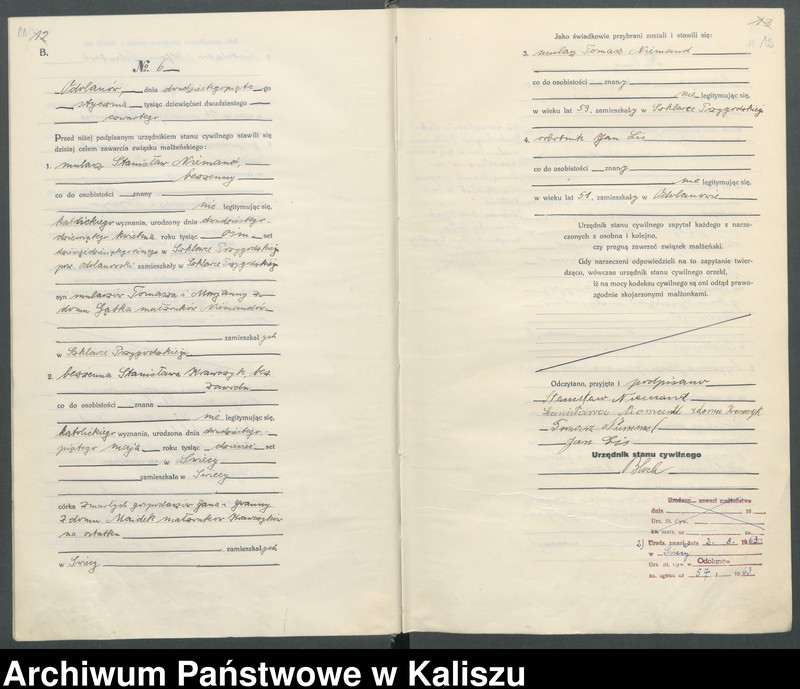 12
B.
No. 6
Odolanów, dnia dwudziestego piątego
stycznia tysiąc dziewięćset dwudziestego
czwartego
Przed niżej podpisanym urzędnikiem stanu cywilnego stawili się
dzisiaj celem zawarcia związku małżeńskiego:
1. mularz Stanisław Niemand,
bezżenny
co do osobistości znany
nie legitymując się,
katolickiego wyznania, urodzony dnia dwudziestego
dziewiątego kwietnia roku tysiąc ośm set
w Szklarce Przygodzkiej
pow. odolanowski zamieszkały w Szklarce Przygodzkiej
syn mularzów Tomasza i Maryanny z
domu Gąbka małżonków Niemandów
zamieszkałych
w Szklarce Przygodzkiej
2. bezżenna Stanisława Krawczyk, bez
zawodu
co do osobistości znana
nie legitymując się,
katolickiego wyznania, urodzona dnia dwudziestego
piątego maja roku tysiąc dziewięć set
w Świecy
zamieszkała w Świecy
córka zmarłych gospodarzów Jana i
z domu Majdek małżonków Krawczyków
na ostatku
zamieszkałych
w Świecy
13
12
Jako świadkowie przybrani zostali i stawili się:
3. mularz Tomasz Niemand
co do osobistości znany
nie legitymując się,
w wieku lat 59, zamieszkały w Szklarce Przygodzkiej
4. robotnik Jan Lis
co do osobistości znany
nie legitymując się,
w wieku lat 51, zamieszkały w Odolanowie
Urzędnik stanu cywilnego zapytał każdego z narze-
czonych z osobna i kolejno,
czy pragną zawrzeć związek małżeński.
Gdy narzeczeni odpowiedzieli na to zapytanie twier-
dząco, wówczas urzędnik stanu cywilnego orzekł,
iż na mocy kodeksu cywilnego są oni odtąd prawo-
zgodnie skojarzonymi małżonkami.
Odczytano, przyjęto i podpisano
Stanisław Niemand
Stanisława Niemand z domu Krawczyk
Tomasz Niemand
Jan Lis
Urzędnik stanu cywilnego
Urodzeni zawarł małżeństwo
dnia 19
Urz. St. Cyw.
ks. małż. nr
2) Urodz. zmarł dnia 2. 8. 1963
w Świecy
Urz. St. Cyw. w Odolanów
ks. zgonu nr 57 / 1963
Archiwum Państwowe w Kaliszu